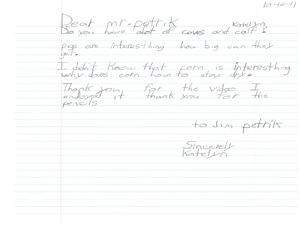 10-12-11
Dear mr. petrik Katelyn,
Do you have alot of cows and calf?
pigs are interessthing how big can they
get.
I didn't know that corn is interessthing
why does corn have to stay dry.
Thank you for the video I
enjoyed it thank you for the
pencils
to Jim petrik
Sincerely
Katelyn